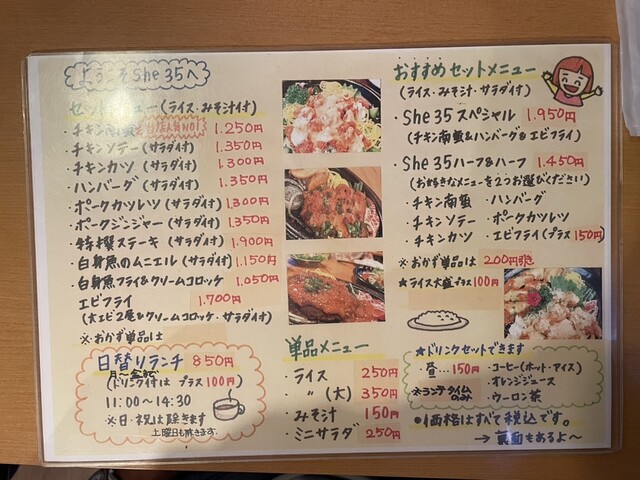 ようこそ She 35へ
セットメニュー(ライス・みそ汁付)
・チキン南蛮 当店人気NO1 1.250円
・チキンソテー(サラダ付) 1.350円
・チキンカツ(サラダ付) 1.300円
・ハンバーグ(サラダ付) 1.350円
・ポークカツレツ(サラダ付) 1.300円
・ポークジンジャー(サラダ付) 1.350円
・特撰ステーキ(サラダ付) 1.900円
・白身魚のムニエル(サラダ付) 1.150円
・白身魚フライ&クリームコロッケ 1.050円
エビフライ 1.700円
(大エビ2尾&クリームコロッケ・サラダ付)
※おかず単品は
日替りランチ 850円
月〜金まで
(ドリンク付は プラス100円)
11:00〜14:30
※日・祝は除きます
土曜日も除きます
単品メニュー
・ライス 250円
・〃(大) 350円
・みそ汁 150円
・ミニサラダ 250円
おすすめセットメニュー
(ライス・みそ汁・サラダ付)
・She 35スペシャル 1.950円
(チキン南蛮&ハンバーグ&エビフライ)
・She 35ハーフ&ハーフ 1.450円
(お好きなメニューを2つお選びください)
・チキン南蛮 ・ハンバーグ
・チキンソテー ・ポークカツレツ
・チキンカツ ・エビフライ(プラス150円)
※おかず単品は 200円引
★ライス大盛プラス100円
★ドリンクセットできます
・昼…150円 ・コーヒー(ホット・アイス)
※ランチタイムのみ ・オレンジジュース
・ウーロン茶
●価格はすべて税込です。
→裏面もあるよ〜